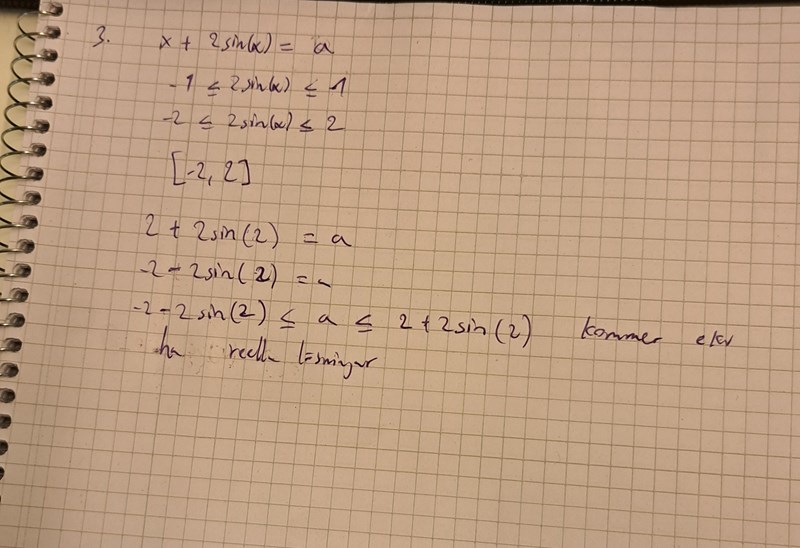 3. x + 2sin(x) = a
-1 ≤ 2sin(x) ≤ 1
-2 ≤ 2sin(x) ≤ 2
[-2, 2]
2 + 2sin(2) = a
-2 - 2sin(2) = a
-2 - 2sin(2) ≤ a ≤ 2 + 2sin(2) kommer ekv
ha reella lösningar